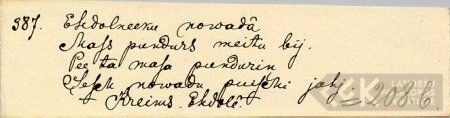 387. Ehdolneeku nowadâ
Mass pundurs meitu bij.
Pee ta masa pundurin
Sesch nowadu puischi jahj.
Kreims. Ehdolê. = 208.6.